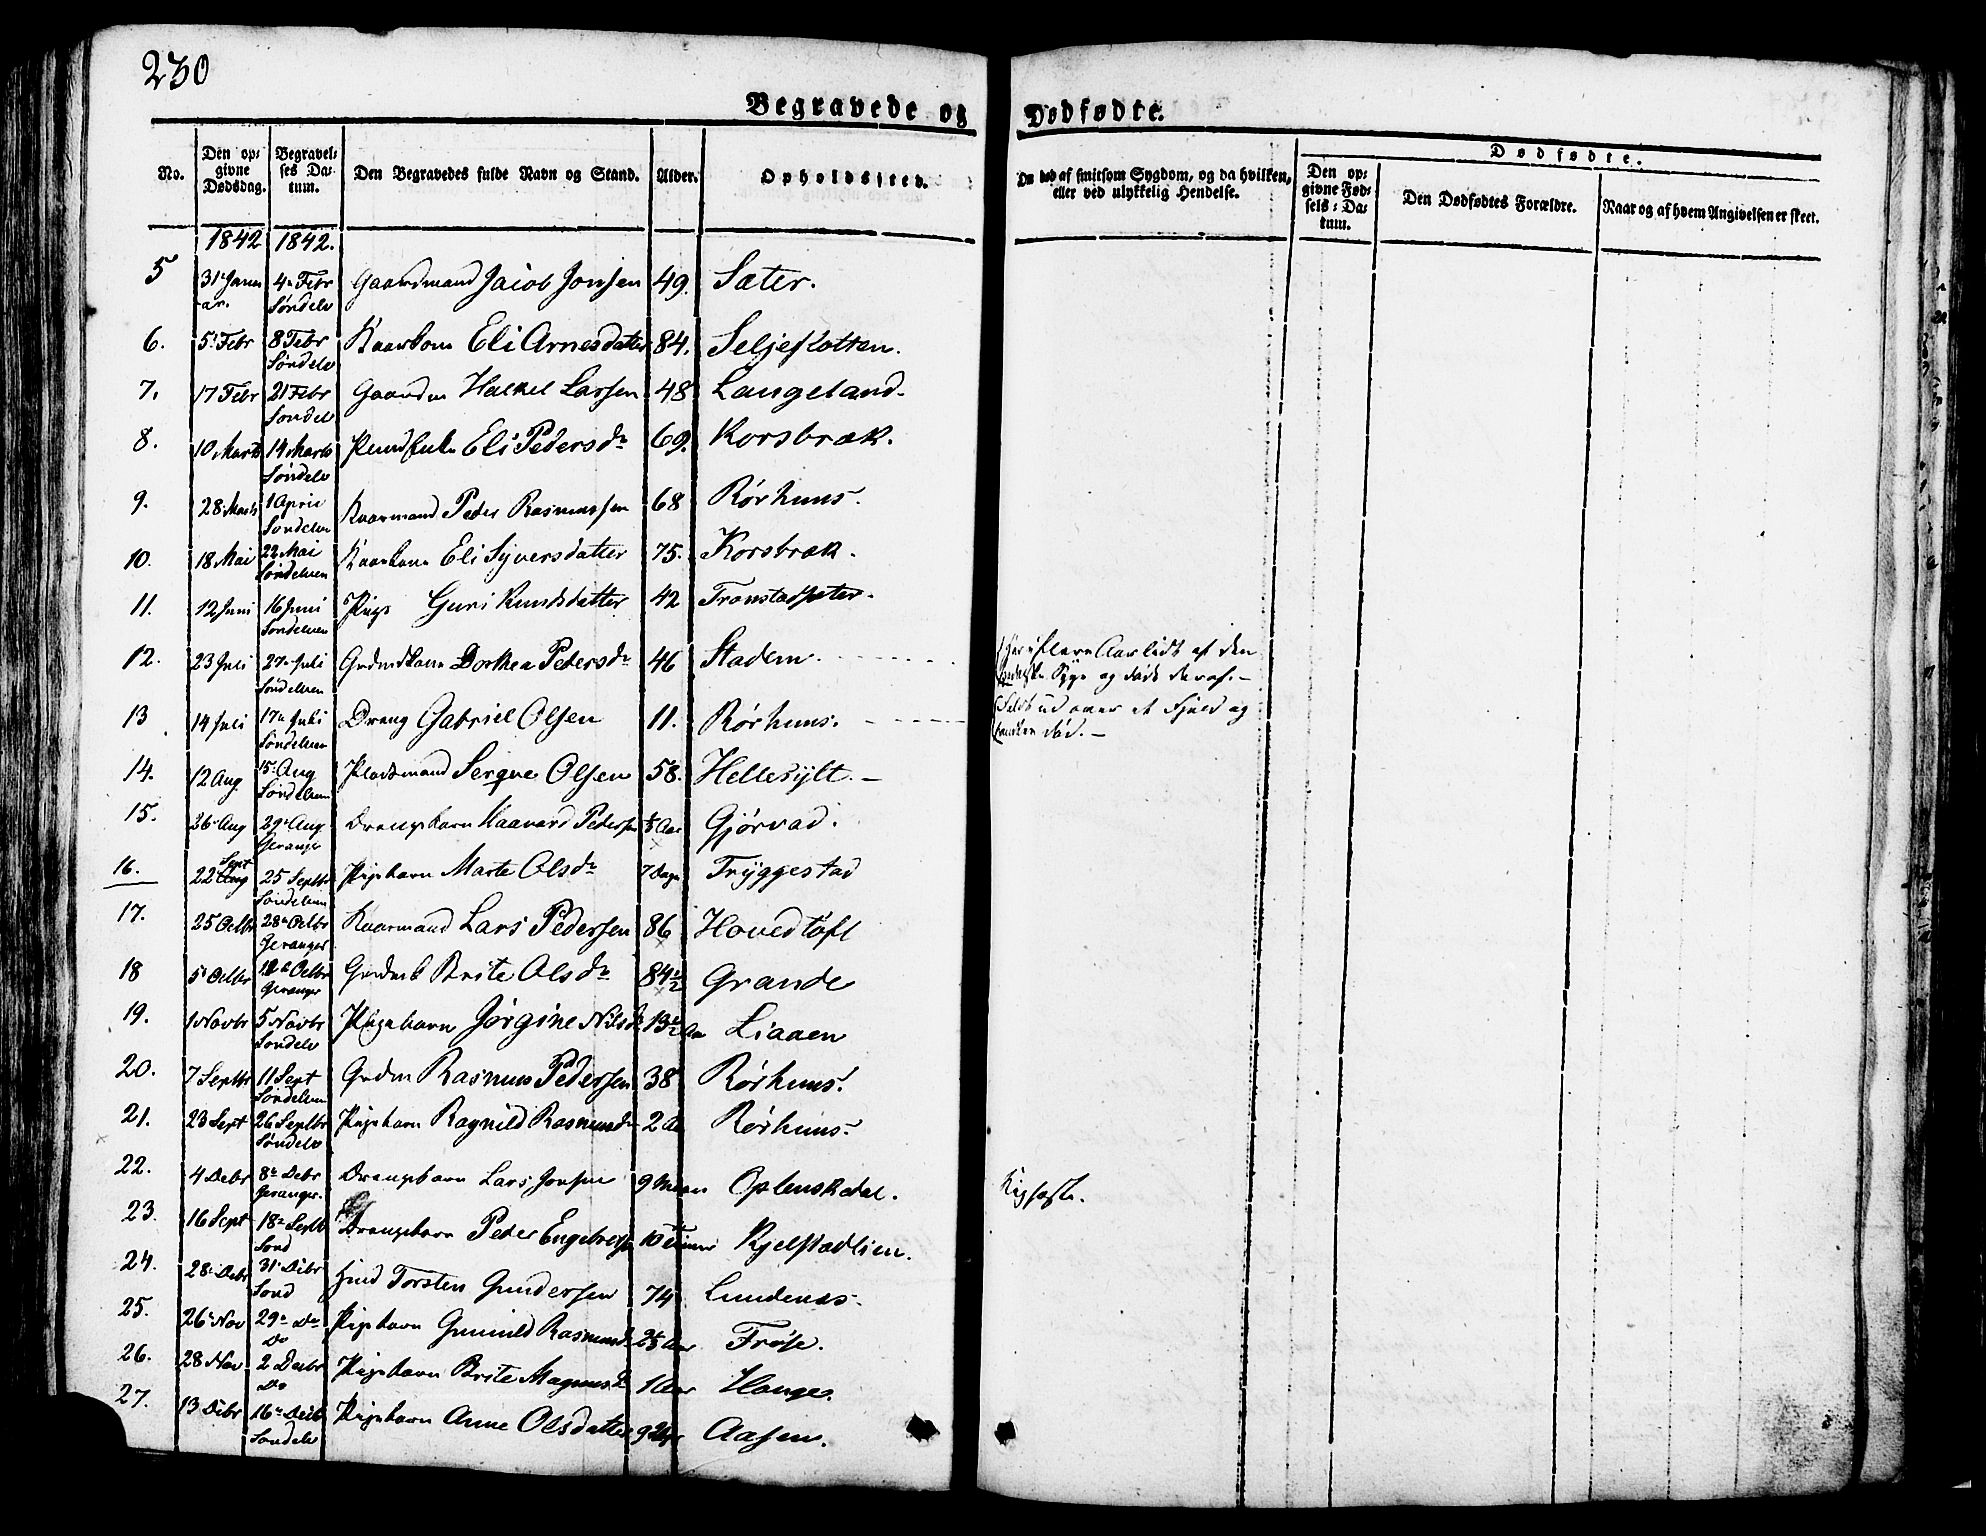 230
Begravede og Dødfødte.
No.
Den opgivne Dødsdag.
Begravelses Datum.
Den Begravedes fulde Navn og Stand.
Alder.
Opholdssted.
Om død af smitsom Sygdom, og da hvilken, eller ved ulykkelig Hendelse.
Dødfødte.
Den opgivne Fødsels-Datum.
Den Dødfødtes Forældre.
Naar og af hvem Angivelsen er skeet.
1842 1842.
5 31 Januar. 4 Febr Søndelv Gaardmand Jacob Jonsen 49. Sæter.
6. 5 Febr 8 Febr Søndelv Kaarkone Eli Arnesdatter 84. Seljeflotten.
7. 17 Febr 21 Febr Søndelv Gaardm Halkel Larsen 48 Langeland.
8. 10 Marts 14 Marts Søndelv Eli Pedersdr 69. Korsbræk.
9. 28 Marts 1 April Søndelven Kaarmand Peder Rasmussen 68 Rørhuus.
10. 18 Mai 22 Mai Søndelven Kaarkone Eli Syversdatter 75. Korsbræk.
11. 12 Juni 16 Juni Søndelven Pige Guri Knudsdatter 42 Tronstadsæter.
12. 23 Juli 27 Juli Søndelven Grdmdkone Dorthea Pedersdr 46 Stadem. har i flere Aar lidt af den spedalske Syge og døde deraf.
13 14 Juli 17 Juli Søndelven Dreng Gabriel Olsen 11. Rørhuus. Faldt ud over et Fjeld og døde.
14. 12 Aug 15 Aug Søndelven Pladsmand Serque Olsen 58. Hellesylt.
15. 26 Aug 29 Aug Geranger Drengebarn Haavard Pedersen Aar Gjørvad.
16. 22 Sept 25 Septbr Søndelven Pigebarn Marte Olsdr 7 Dage Tryggestad
17. 25 Octbr 28 Octbr Geranger Kaarmand Lars Pedersen 86 Hovedtøft
18 5 Octbr Octbr Geranger Brite Olsdr 84½ Grande
19. 1 Novbr 5 Novbr Søndelv Pigebarn Jørgine Nilsd 13½ Aar Liaaen
20. 7 Septbr 11 Sept Søndelven Grdm Rasmus Pedersen 38 Rørhuus.
21. 23 Sept 26 Septbr Søndelv Pigebarn Ragnild Rasmusdr 2 Aar Rørhuus.
22. 4 Debr 8 Debr Geranger. Drengebarn Lars Jonsen 9 Oplenskedal. Kighoste.
23. 16 Sept 18 Septb Sønd Drengebarn Peder Engebretsen 10 Timer Kjelstadlien.
24. 28 Debr 31 Debr Sønd Torsten Gundersen 74 Lundenes.
25. 26 Nov 29 Do Do Pigebarn Gunnild Rasmusd Aar Frøse.
26. 28 Nov 2 Decbr Do Pigebarn Brite Magnusd 1 Aar Hauge.
27. 13 Debr 16 Decb Søndelv Pigebarn Anne Olsdatter 9 Aasen.